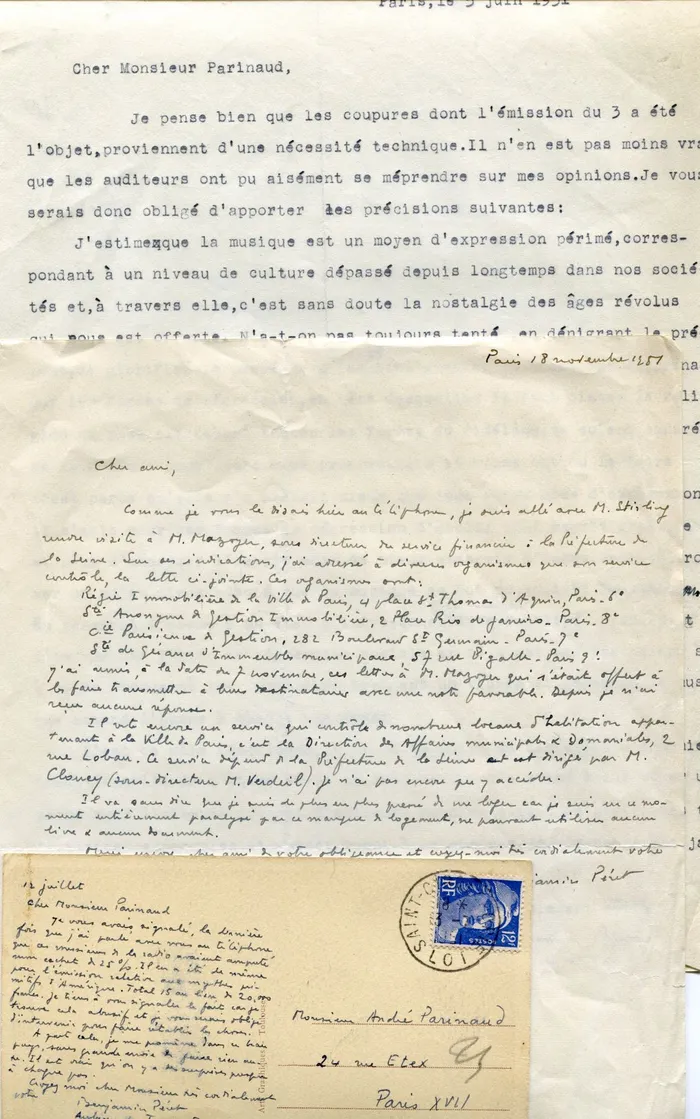 Paris, le 5 juin 1951
Cher Monsieur Parinaud,
Je pense bien que les coupures dont l'émission du 3 a été
l'objet,proviennent d'une nécessité technique.Il n'en est pas moins vra
que les auditeurs ont pu aisément se méprendre sur mes opinions.Je vous
serais donc obligé d'apporter les précisions suivantes:
J'estime que la musique est un moyen d'expression périmé,corres-
pondant à un niveau de culture dépassé depuis longtemps dans nos socié-
tés et,à travers elle,c'est sans doute la nostalgie des âges révolus
qui nous est offerte. N'a-t-on pas toujours tenté, en dénigrant le pré
Paris 18 novembre 1951
Cher ami,
Comme je vous le disais hier au téléphone, je suis allé avec M. Stirling
rendre visite à M. Mazoyer, sous directeur du service financier à la Préfecture de
la Seine. Sur ses indications, j'ai adressé à divers organismes que son service
contrôle, la lettre ci-jointe. Ces organismes sont:
Régie Immobilière de la Ville de Paris, 4 place St Thomas d'Aquin, Paris-6e
Sté Anonyme de Gestion Immobilière, 2 Place Rio de Janeiro - Paris-8e
Cie Parisienne de Gestion, 282 Boulevard St Germain - Paris-7e
Sté de Gérance d'Immeubles municipaux, 57 rue Pigalle - Paris 9e
J'ai remis, à la date du 7 novembre, ces lettres à M. Mazoyer qui s'était offert à
les faire transmettre à leurs destinataires avec une note favorable. Depuis je n'ai
reçu aucune réponse.
Il reste encore un service qui contrôle de nombreux locaux d'habitation appar-
tenant à la Ville de Paris, c'est la Direction des Affaires municipales & Domaniales, 2
rue Lobau. Ce service dépend de la Préfecture de la Seine et est dirigé par M.
Cloney (sous-directeur M. Verdeil). Je n'ai pas encore pu y accéder.
Il va sans dire que je suis de plus en plus pressé de me loger car je suis en ce mo-
ment entièrement paralysé par ce manque de logement, ne pouvant utiliser aucun
livre & aucun document.
Merci encore, cher ami de votre obligeance et croyez-moi très cordialement votre
Benjamin Péret
12 juillet
Cher Monsieur Parinaud
Je vous avais signalé, la dernière
fois que j'ai parlé avec vous au téléphone
que ces messieurs de la radio avaient amputé
mon cachet de 25%. Il en a été de même
pour l'émission relative aux mythes pri-
mitifs d'Amérique. Total 15 au lieu de 20,000
francs. Je tiens à vous signaler le fait car je
trouve cela abusif et je vous serais obligé
d'intervenir pour faire rétablir les choses.
A part cela, je me promène dans ce beau
pays, sans grande envie de faire rien au-
tre. Il est vrai qu'on y a des surprises presque
à chaque pas.
Croyez moi cher Monsieur très cordialement
votre
Benjamin Péret
SAINT-C
LOT
RF
12F
POSTES
Monsieur André Parinaud
24 rue Etex
Paris XVII